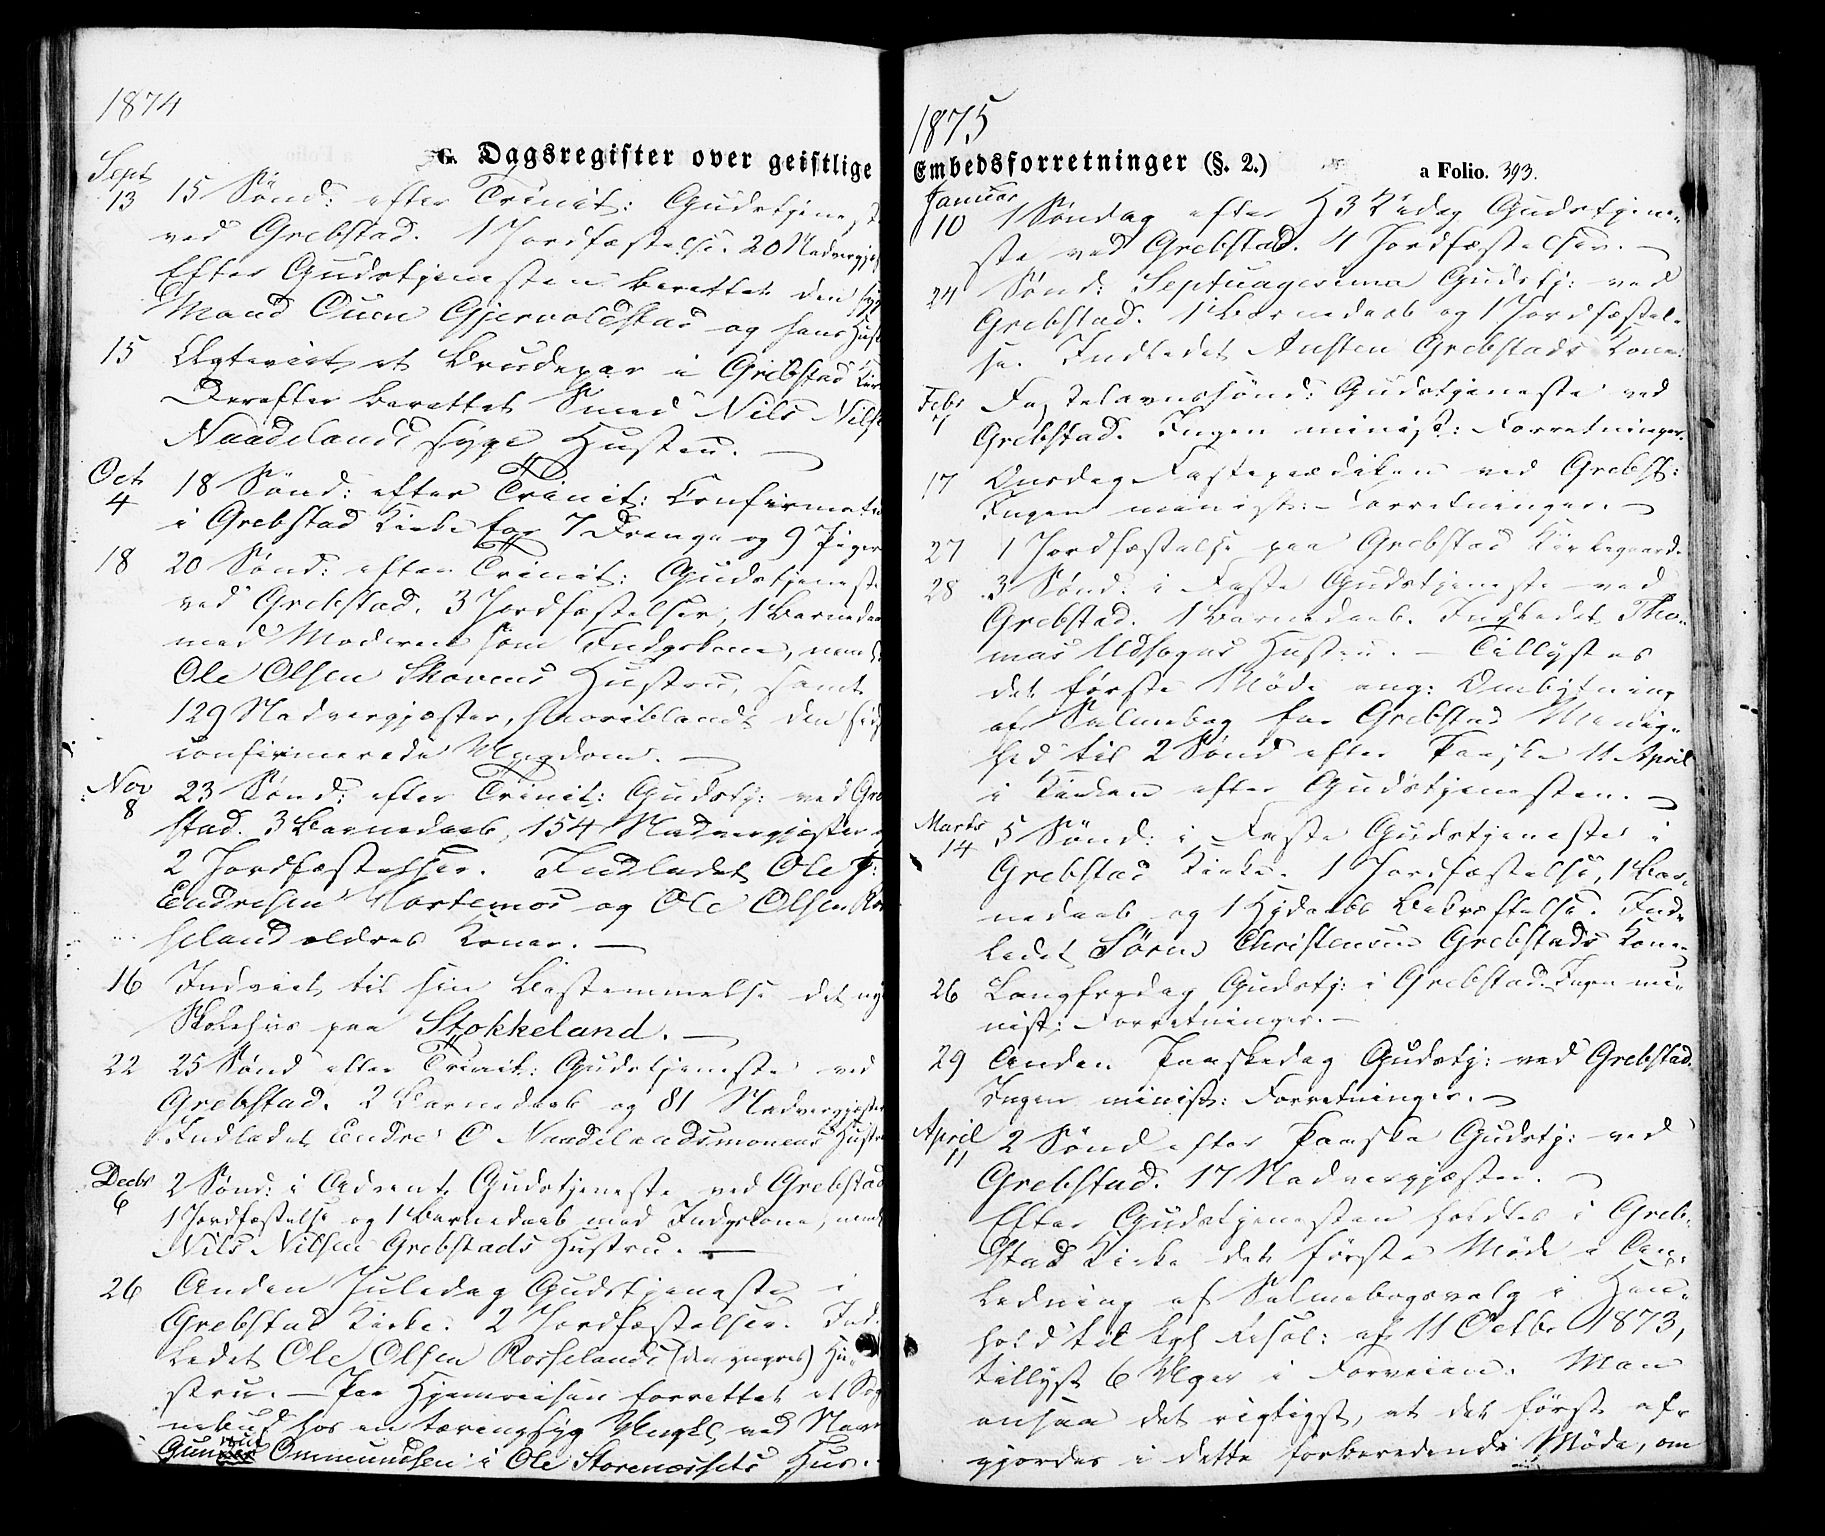 1874
G. Dagsregister over geistlige
Sept
13 15 Sønd: efter Trinit: Gudstjenest
ved Grebstad. 1 Jordfæstelse. 20 Nadvergjes
Efter Gudstjenesten berettet den syge
Mand Ouen Gjervoldstad og hans Hust
15 Ægteviet et Brudepar i Grebstad Kir
Derefter berettet Smed Nils Nilse
Naadelands syge Hustru. —
Oct
4 18 Sønd: efter Trinit: Confirmation
i Grebstad Kirke for 7 Drenge og 9 Piger
18 20 Sønd: efter Trinit: Gudstjeneste
ved Grebstad. 3 Jordfæstelser, 1 Barnedaab
med Moderen som Indgskone, neml
Ole Olsen Skovens Hustru, samt
129 Nadvergjæster, hvoriblandt den sids
confirmerede Ungdom. —
Nov
8 23 Sønd: efter Trinit: Gudstj: ved Greb
stad. 3 Barnedaab, 154 Nadvergjæster,
2 Jordfæstelser. Indledet Ole J:
Endresen Hortemos og Ole Olsen Ros
seland ældres Koner. —
16 Indviet til sin Bestemmelse det nye
Skolehus paa Stokkeland. —
22 25 Sønd efter Trinit: Gudstjeneste ved
Grebstad. 2 Barnedaab og 81 Nadvergjæster
Indledet Endre O Naadelandsmonens Hustru
Decbr
6 2 Sønd: i Advent Gudstjeneste ved Grebstad
1 Jordfæstelse og 1 Barnedaab med Indgskone, neml
Nils Nilsen Grebstads Hustru. —
26 Anden Juledag Gudstjeneste i
Grebstad Kirke. 2 Jordfæstelser. Ind-
ledet Ole Olsen Rosselands (den yngres) Hu-
stru. — Paa Hjemreisen forrettet et Sog
nebud hos en tæringssyg Yngl. ved Navn
Gunder Ommundsen i Ole Storenæssets Hus.
1875
Embedsforretninger (§. 2.) a Folio. 393.
Januar
10 1 Søndag efter H 3 K Dag Gudstjene-
ste ved Grebstad. 4 Jordfæstelser. —
24 Sønd: Septuagesima Gudstj: ved
Grebstad. 1 Barnedaab og 1 Jordfæstel-
se. Indledet Austen Grebstads Kone.
Febr
7 Fastelavnssønd: Gudstjeneste ved
Grebstad. Ingen minist: Forretninger.
17 Onsdag Fasteprædiken ved Grebst:
Ingen minist: Forretninger. —
27 1 Jordfæstelse paa Grebstad Kirkegaard.
28 3 Sønd: i Faste Gudstjeneste ved
Grebstad. 1 Barnedaab. Indledet Tho-
mas Udhogns Hustru. — Tillystes
det første Møde ang: Ombytning
af Salmebog for Grebstad Menig-
hed til 2 Sønd efter Paaske 11 April
i Kirken efter Gudstjenesten. —
Marts
14 5 Sønd: i Faste Gudstjeneste i
Grebstad Kirke. 1 Jordfæstelse, 1 Bar-
nedaab og 1 Hjdaabs Bekræftelse. Ind-
ledet Søren Christensen Grebstads Kone.
26 Langfredag Gudstj: i Grebstad. Ingen mi-
nist: Forretninger. —
29 Anden Paaskedag Gudstj: ved Grebstad.
Ingen minist: Forretninger. —
April
11 2 Sønd efter Paaske Gudstj: ved
Grebstad. 17 Nadvergjæster. —
Efter Gudstjenesten holdtes i Greb-
stad Kirke det første Møde i An-
ledning af Salmebogsvalg i Hen-
hold til kgl Resol: af 11 Octbr 1873,
tillyst 6 Uger i Forveien. Man
ansaa det rigtigst, at det først af-
gjordes i dette forberedende Møde, om